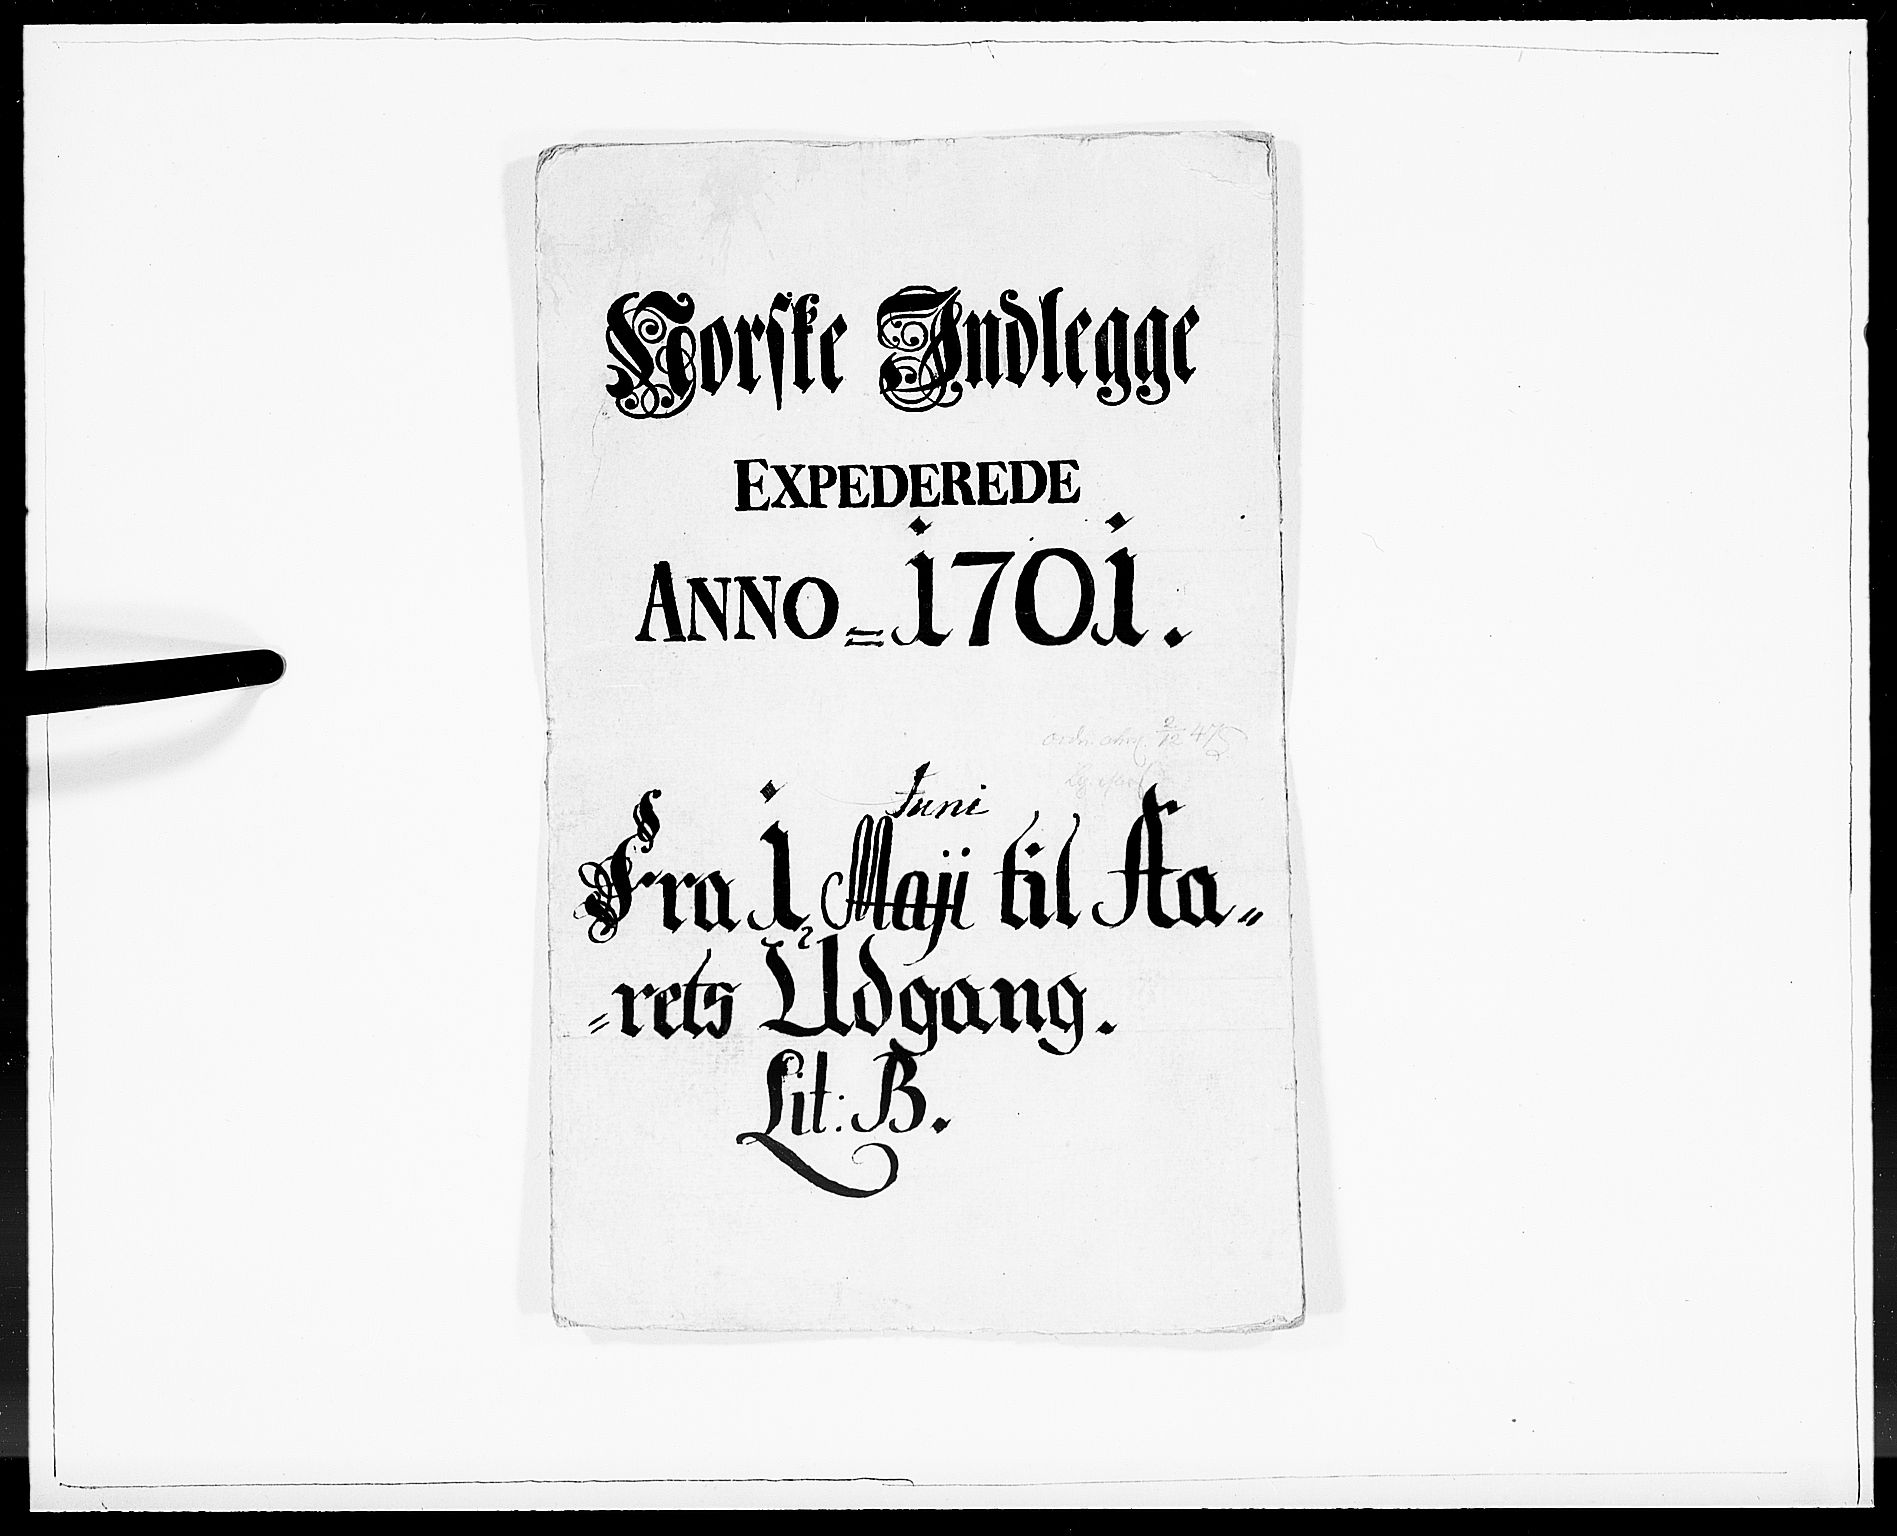 Norske Indlegge
EXPEDEREDE
ANNO = 1701.
Juni
Fra 1 Maji til Aa=
=rets Udgang.
Lit: B.